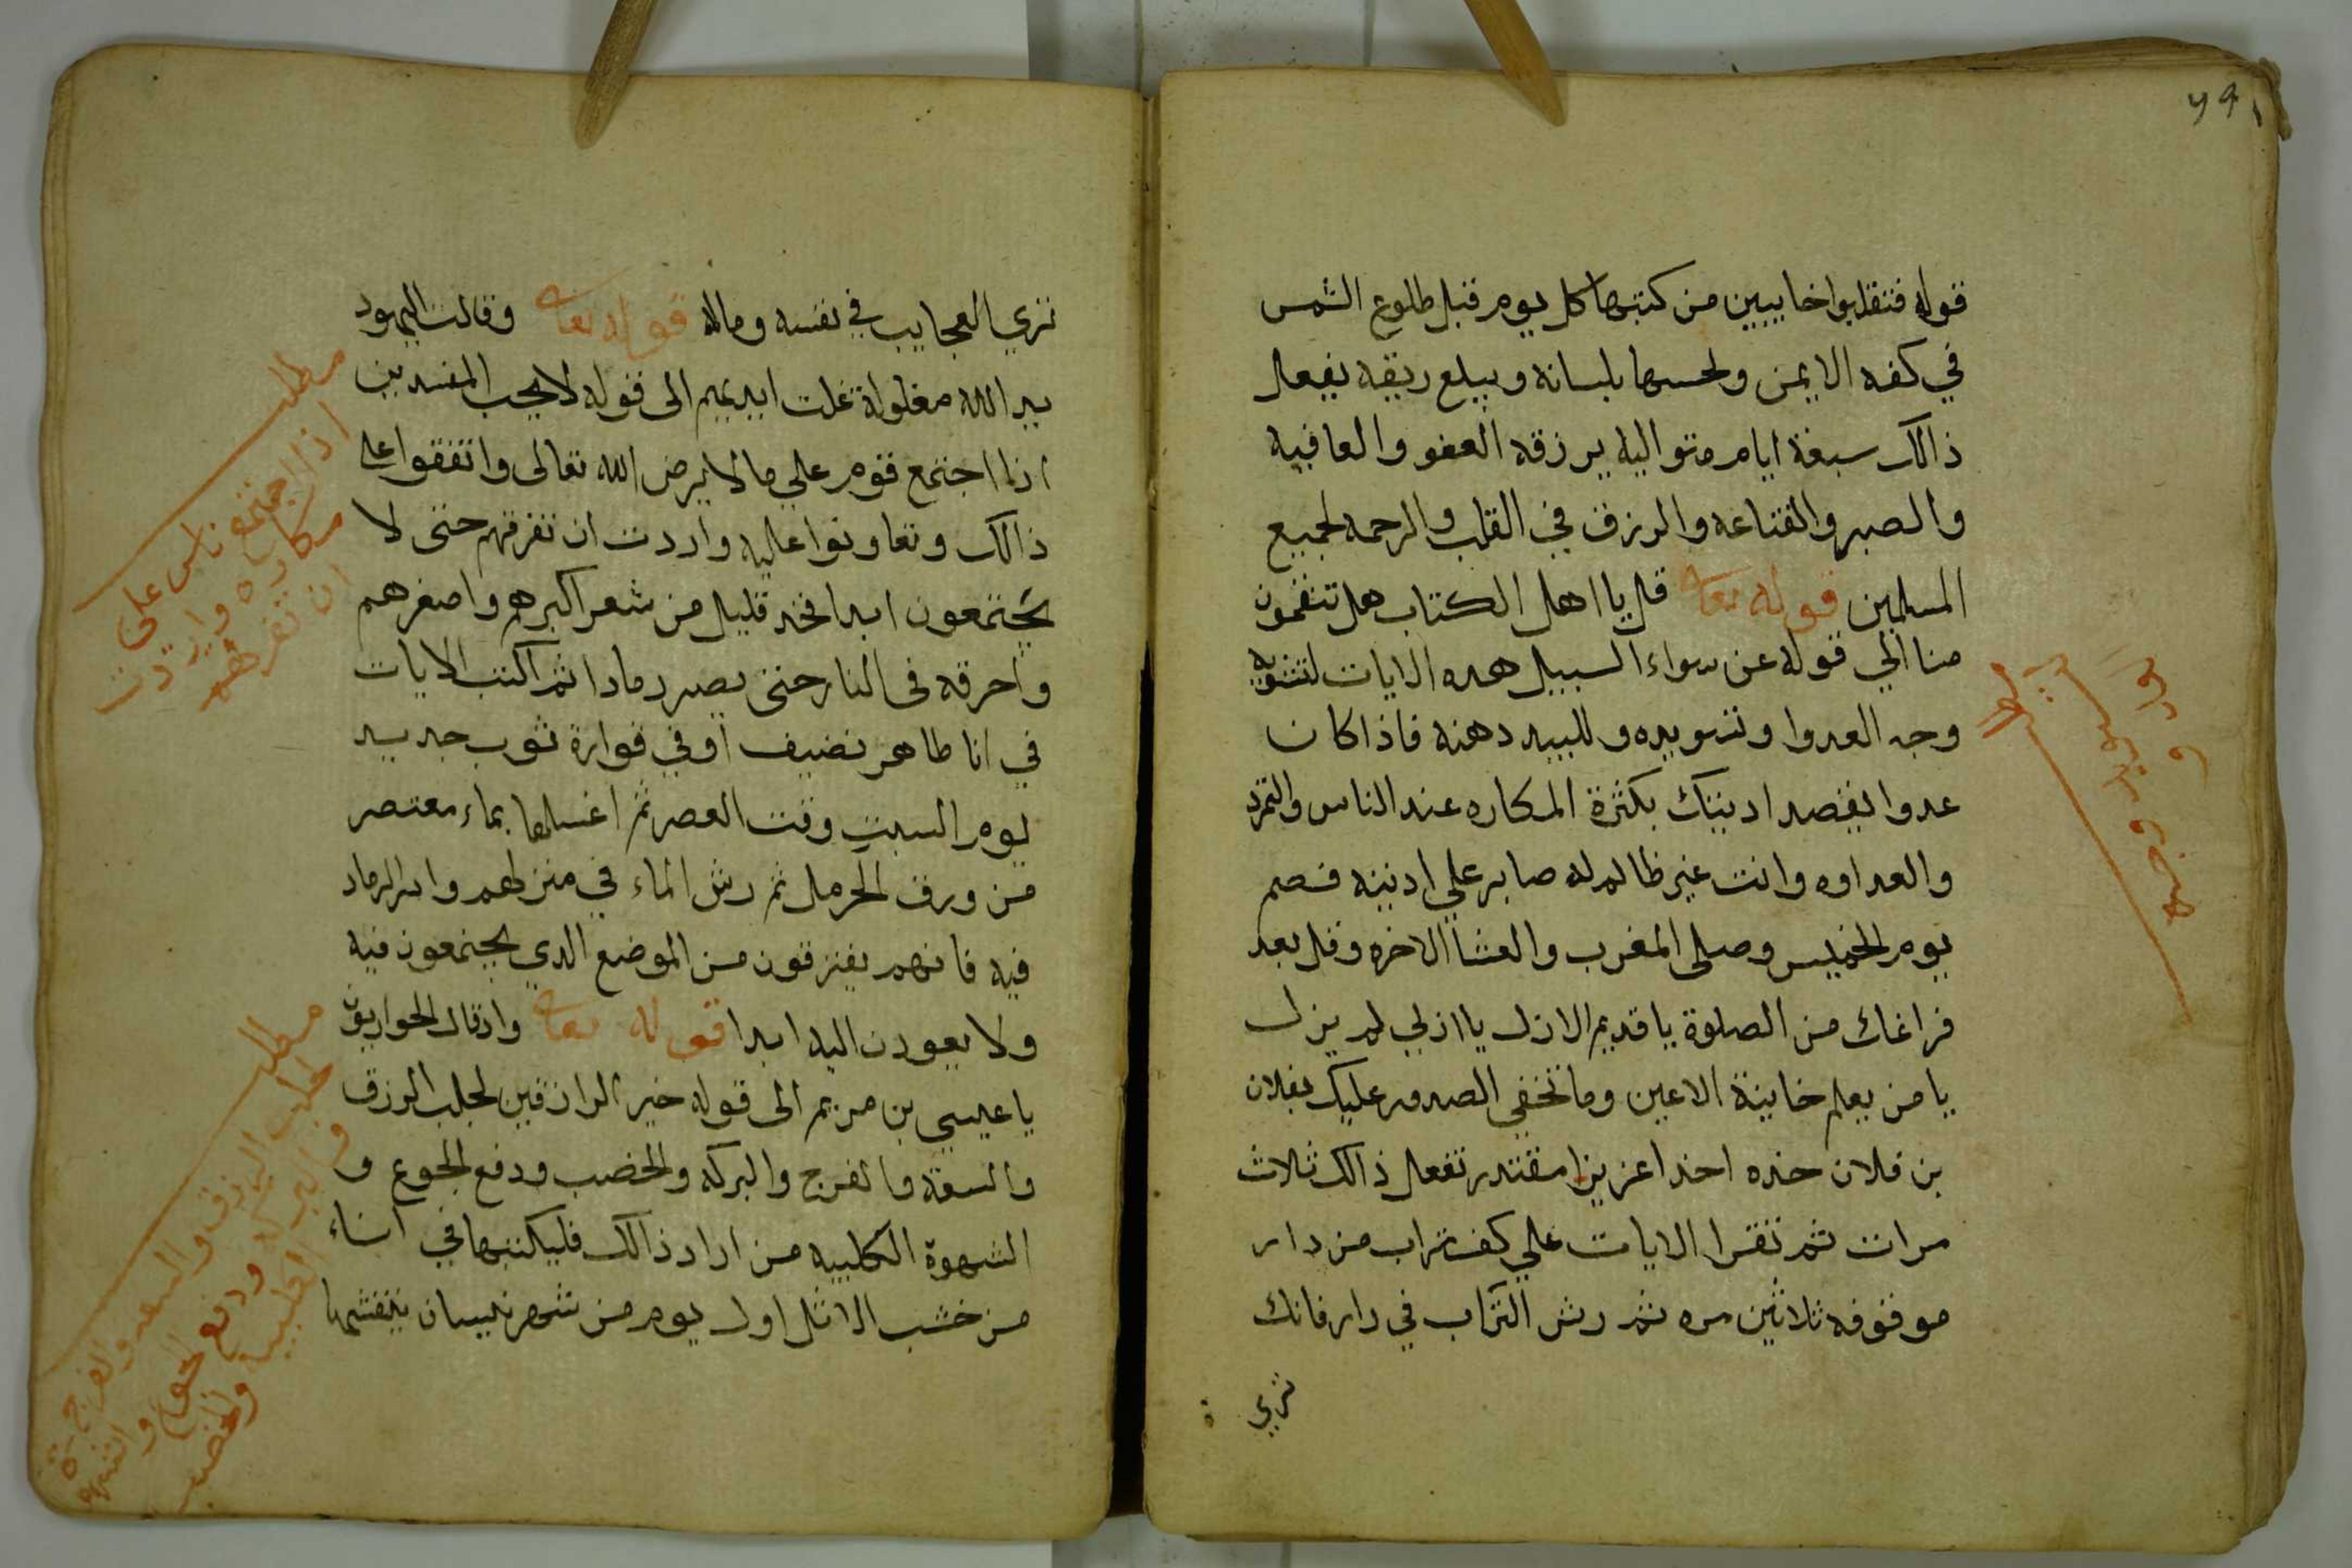 قوله فتنقلبوا خايبين من كتبها كل يوم قبل طلوع الشمس
في كفه الايمن ولحسها بلسانه ويبلع ريقه يفعل
ذالك سبعة ايام متواليه يرزقه العفو والعافيه
والصبر والقناعه والرزق في القلب والرحمه لجميع
المسلمين قوله تعالى قل يا اهل الكتاب هل تنقمون
منا الي قوله عن سواء السبيل هده الايات لتشويه
وجه العدوا وتسويده وللبيد دهنه فاذا كان
عدوا يقصد ادينك بكثرة المكاره عند الناس والتمرد
والعداوه وانت غير ظالم له صابر علي ادينه فصم
يوم الخميس وصلى المغرب والعشا الاخره وقل بعد
فراغك من الصلوة يا قديم الازل يا ازلي لم يزل
يا من يعلم خاينة الاعين وما تخفي الصدور عليك بفلان
بن فلان خده اخدا عزيزا مقتدر تفعل ذالك ثلاث
مرات ثم تقرا الايات علي كف تراب من دار
موقوفه ثلاثين مره ثم رش التراب في دار فانك
تري
تري العجايب في نفسه وماله قوله تعالى وقالت اليهود
يد الله مغلولة غلت ايديهم الى قوله لا يحب المفسدين
اذا اجتمع قوم علي ما لا يرض الله تعالى واتفقوا على
ذالك وتعاونوا عليه واردت ان تفرقهم حتى لا
يجتمعون ابدا فخد قليل من شعر اكبرهم واصغرهم
واحرقه في النار حتى يصير رمادا ثم اكتب الايات
في انا طاهر نضيف او في قوارة ثوب جديد
يوم السبت وقت العصر ثم اغسلها بماء معتصر
من ورق الحرمل ثم رش الماء في منزلهم وادر الرماد
فيه فانهم يفترقون من الموضع الدي يجتمعون فيه
ولا يعودن اليه ابدا قوله تعالى واد قال الحواريون
يا عيسي بن مريم الى قوله خير الرازقين لجلب الرزق
والسعة والفرج والبركه والخصب ودفع الجوع و
الشهوة الكلبيه من اراد ذالك فليكتبها في اناء
من خشب الاثل اول يوم من شهر نيسان ينقشها
مطلب
اذا اجتمع ناس على
مكاره واردت
ان تفرقهم
مطلب
لجلب الرزق والسعه والفرج
ودفع الجوع و
والخصب